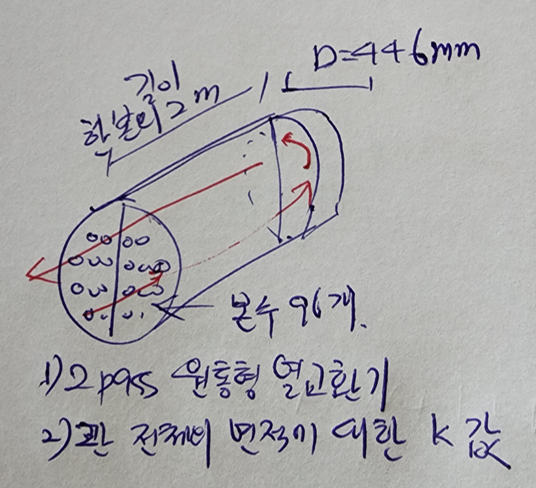 D=446mm
길이
한본의 2m
본수 96개.
1) 2pass 원통형 열교환기
2) 관 전체의 면적에 대한 K 값